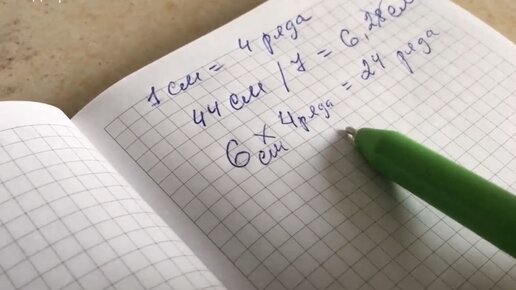 1 см = 4 ряда
44 см / 7 = 6,28 см
6 см × 4 ряда = 24 ряда